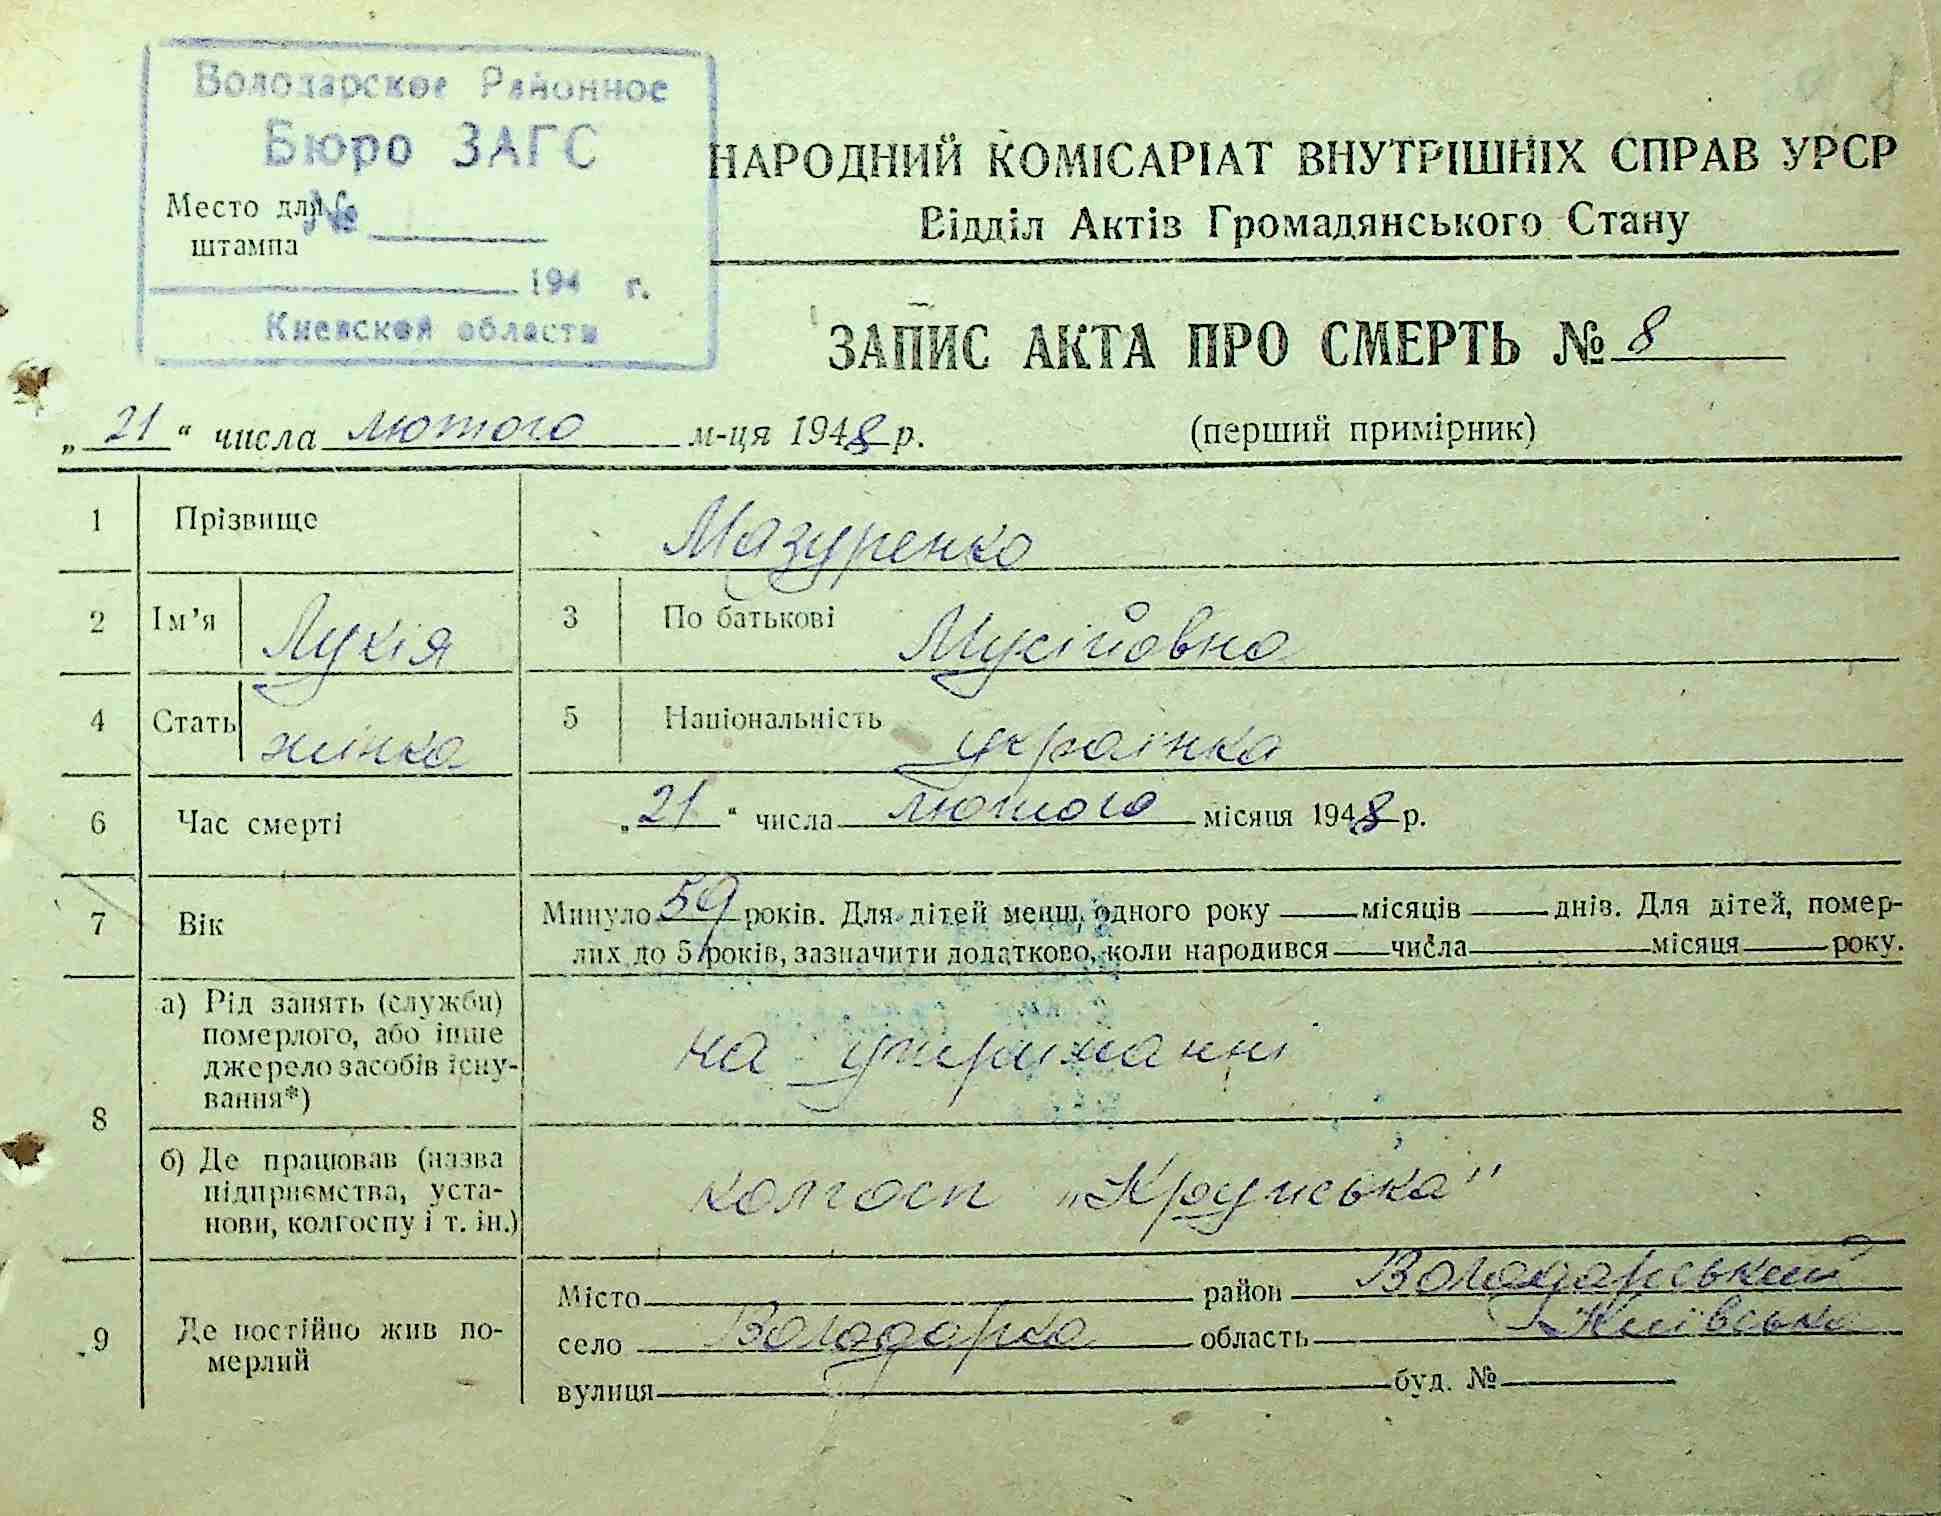 Володарское Районное
Бюро ЗАГС
Место для
штампа
№
194 г.
Киевской области
8
НАРОДНИЙ КОМІСАРІАТ ВНУТРІШНІХ СПРАВ УРСР
Відділ Актів Громадянського Стану
ЗАПИС АКТА ПРО СМЕРТЬ № 8
„21“ числа лютого м-ця 1948 р. (перший примірник)
1 Прізвище Мазуренко
2 Ім’я Лукія 3 По батькові Мусійовна
4 Стать жінка 5 Національність українка
6 Час смерті „21“ числа лютого місяця 1948 р.
7 Вік Минуло 59 років. Для дітей менш одного року місяців днів. Для дітей, помер-
лих до 5 років, зазначити додатково, коли народився числа місяця року.
8 а) Рід занять (служби)
померлого, або інше
джерело засобів існу-
вання*)
на утриманні
б) Де працював (назва
підприємства, уста-
нови, колгоспу і т. ін.)
колгосп
9 Де постійно жив по-
мерлий
Місто район Володарський
село Володарка область Київська
вулиця буд. №